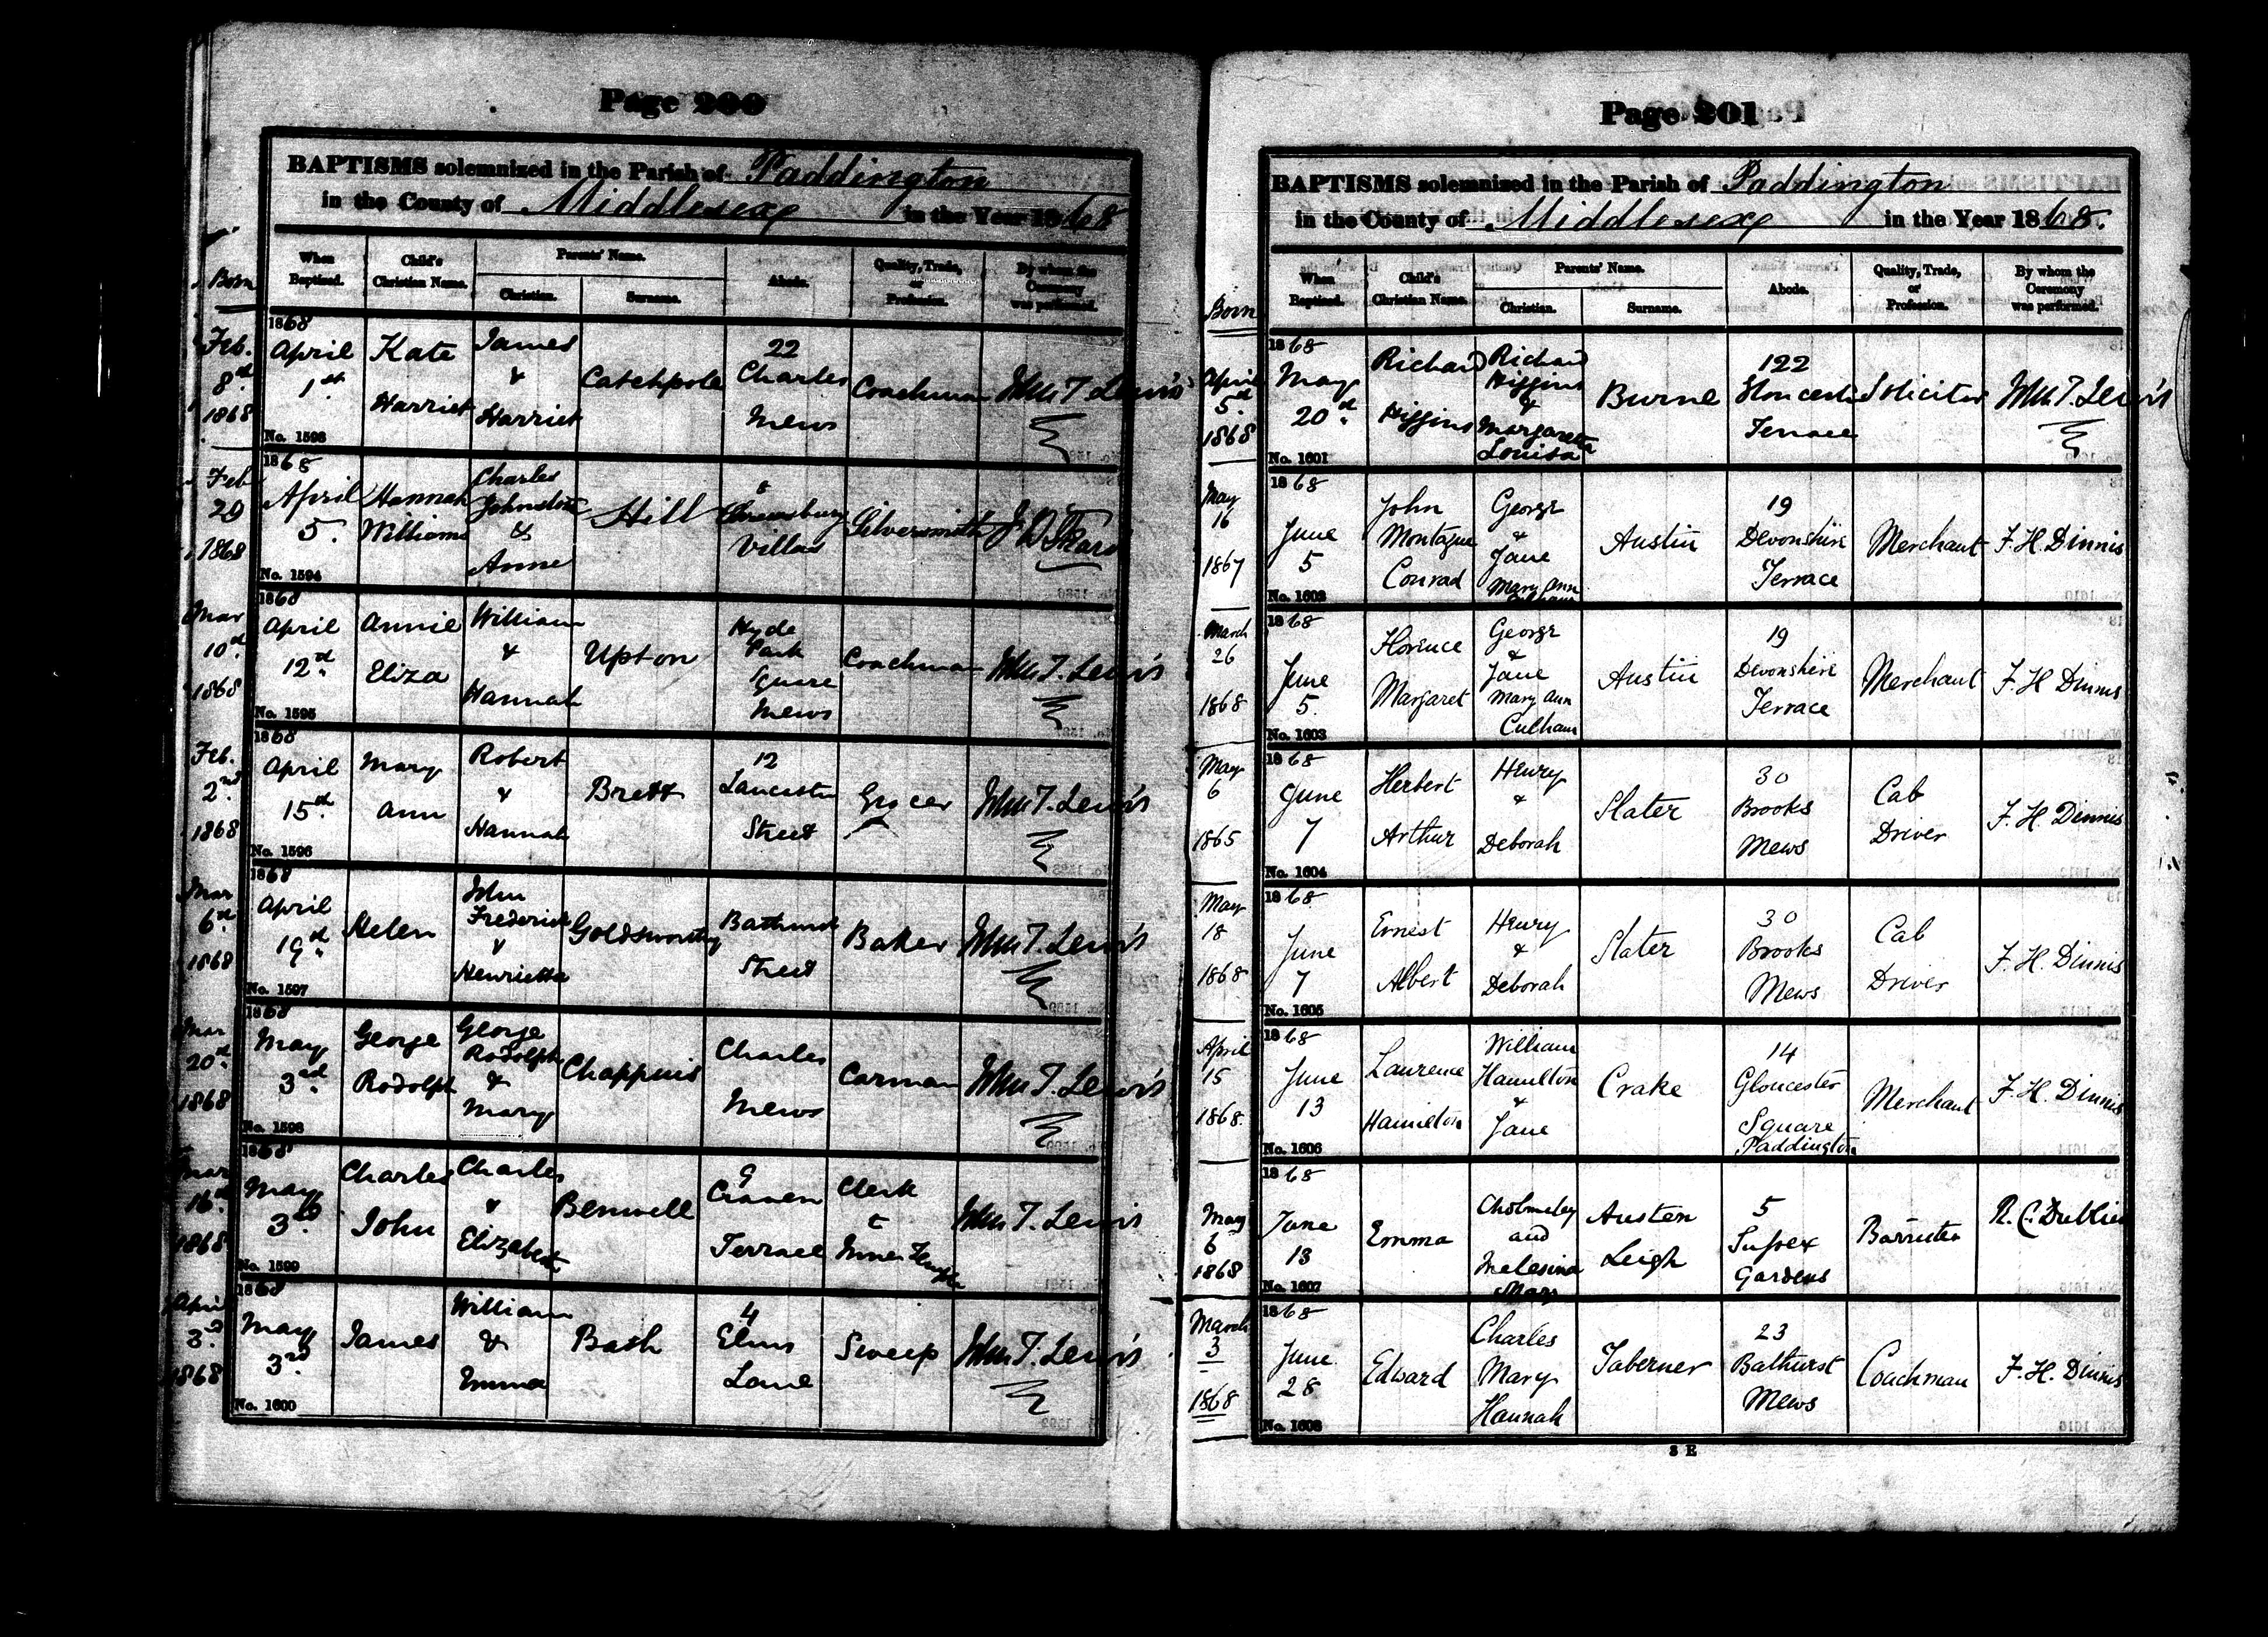 Page 200
BAPTISMS solemnized in the Parish of Paddington
in the County of Middlesex in the Year 1868
Born
When Baptized.
Child's Christian Name.
Parents' Name.
Christian.
Surname.
Abode.
Quality, Trade, or Profession.
By whom the Ceremony was performed.
Feb. 8th 1868
1868 April 1st
No. 1593
Kate Harriet
James & Harriet
Catchpole
22 Charles Mews
Coachman
T. Lewis
Feb 29 1868
1868 April 5.
No. 1594
Hannah Williams
Charles Johnstone & Anne
Hill
Shrewsbury Villas
Silversmith
Mar 10th 1868
1868 April 12th
No. 1595
Annie Eliza
William & Hannah
Upton
Hyde Park Square Mews
Coachman
T. Lewis
Feb. 2nd 1868
1868 April 15th
No. 1596
Mary Ann
Robert & Hannah
Brett
12 Lancaster Street
Grocer
T. Lewis
Mar 6th 1868
1868 April 19th
No. 1597
Helen
John Frederick & Henrietta
Goldsworthy
Bathurst Street
Baker
T. Lewis
Mar 20th 1868
1868 May 3rd
No. 1598
George Rodolph
George Rodolph & Mary
Chappuis
Charles Mews
Carman
T. Lewis
Mar 16th 1868
1868 May 3rd
No. 1599
Charles John
Charles & Elizabeth
Benwell
9 Craven Terrace
Clerk Inner Temple
T. Lewis
April 3rd 1868
1868 May 3rd
No. 1600
James
William & Emma
Bath
4 Elms Lane
Sweep
T. Lewis
Page 201
BAPTISMS solemnized in the Parish of Paddington
in the County of Middlesex in the Year 1868.
Born
When Baptized.
Child's Christian Name.
Parents' Name.
Christian.
Surname.
Abode.
Quality, Trade, or Profession.
By whom the Ceremony was performed.
April 5th 1868
1868 May 20th
No. 1601
Richard Higgins
Richard Higgins & Margaretta Louisa
Burne
122 Gloucester Terrace
Solicitor
T. Lewis
May 16 1867
1868 June 5
No. 1602
John Montague Conrad
George & Jane Mary Ann Culham
Austin
19 Devonshire Terrace
Merchant
F. H. Dinnis
March 26 1868
1868 June 5.
No. 1603
Florence Margaret
George & Jane Mary Ann Culham
Austin
19 Devonshire Terrace
Merchant
F. H Dinnis
May 6 1865
1868 June 7
No. 1604
Herbert Arthur
Henry & Deborah
Slater
30 Brooks Mews
Cab Driver
F. H. Dinnis
May 18 1868
1868 June 7
No. 1605
Ernest Albert
Henry & Deborah
Slater
30 Brooks Mews
Cab Driver
F. H. Dinnis
April 15 1868.
1868 June 13
No. 1606
Laurence Hamilton
William Hamilton & Jane
Crake
14 Gloucester Square Paddington
Merchant
F. H. Dinnis
May 6 1868
1868 June 13
No. 1607
Emma
Cholmeley and Melesina Mary
Austen Leigh
5 Sussex Gardens
Barrister
R. C. Dublin
March 3 1868
1868 June 28
No. 1608
Edward
Charles Mary Hannah
Taberner
23 Bathurst Mews
Coachman
F. H. Dinnis
3 E